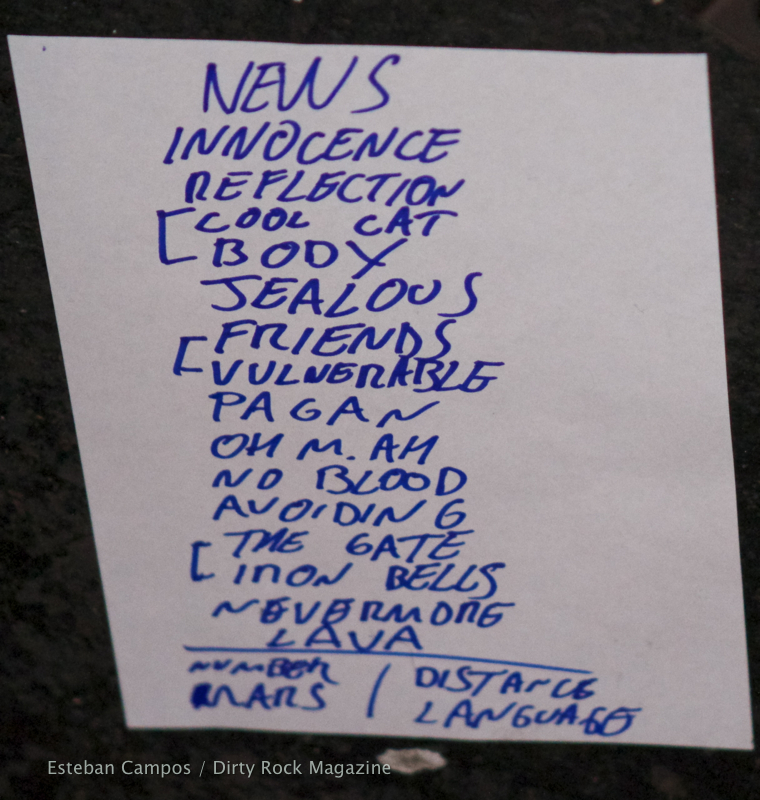 NEWS
INNOCENCE
REFLECTION
COOL CAT
BODY
JEALOUS
FRIENDS
VULNERABLE
PAGAN
OH M. AH
NO BLOOD
AVOIDING
THE GATE
IRON BELLS
NEVERMORE
LAVA
NUMBER / DISTANCE
MARS / LANGUAGE
Esteban Campos / Dirty Rock Magazine